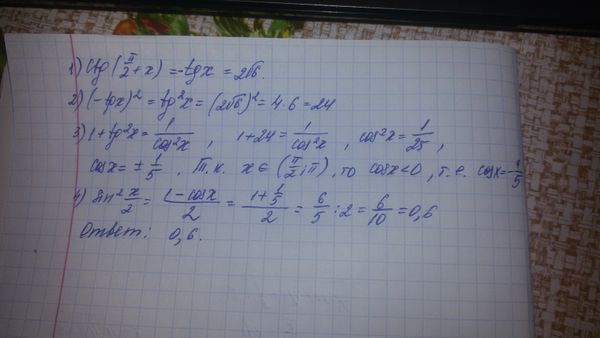 1) ctg(π/2+x) = -tgx = 2√6
2) (-tgx)² = tg²x = (2√6)² = 4·6 = 24
3) 1+tg²x = 1/cos²x , 1+24 = 1/cos²x , cos²x = 1/25 ,
cosx = ± 1/5 , т.к. x ∈ (π/2; π), то cosx<0, т.е. cosx=-1/5
4) sin² x/2 = (1-cosx)/2 = (1+1/5)/2 = 6/5 : 2 = 6/10 = 0,6
Ответ: 0,6.